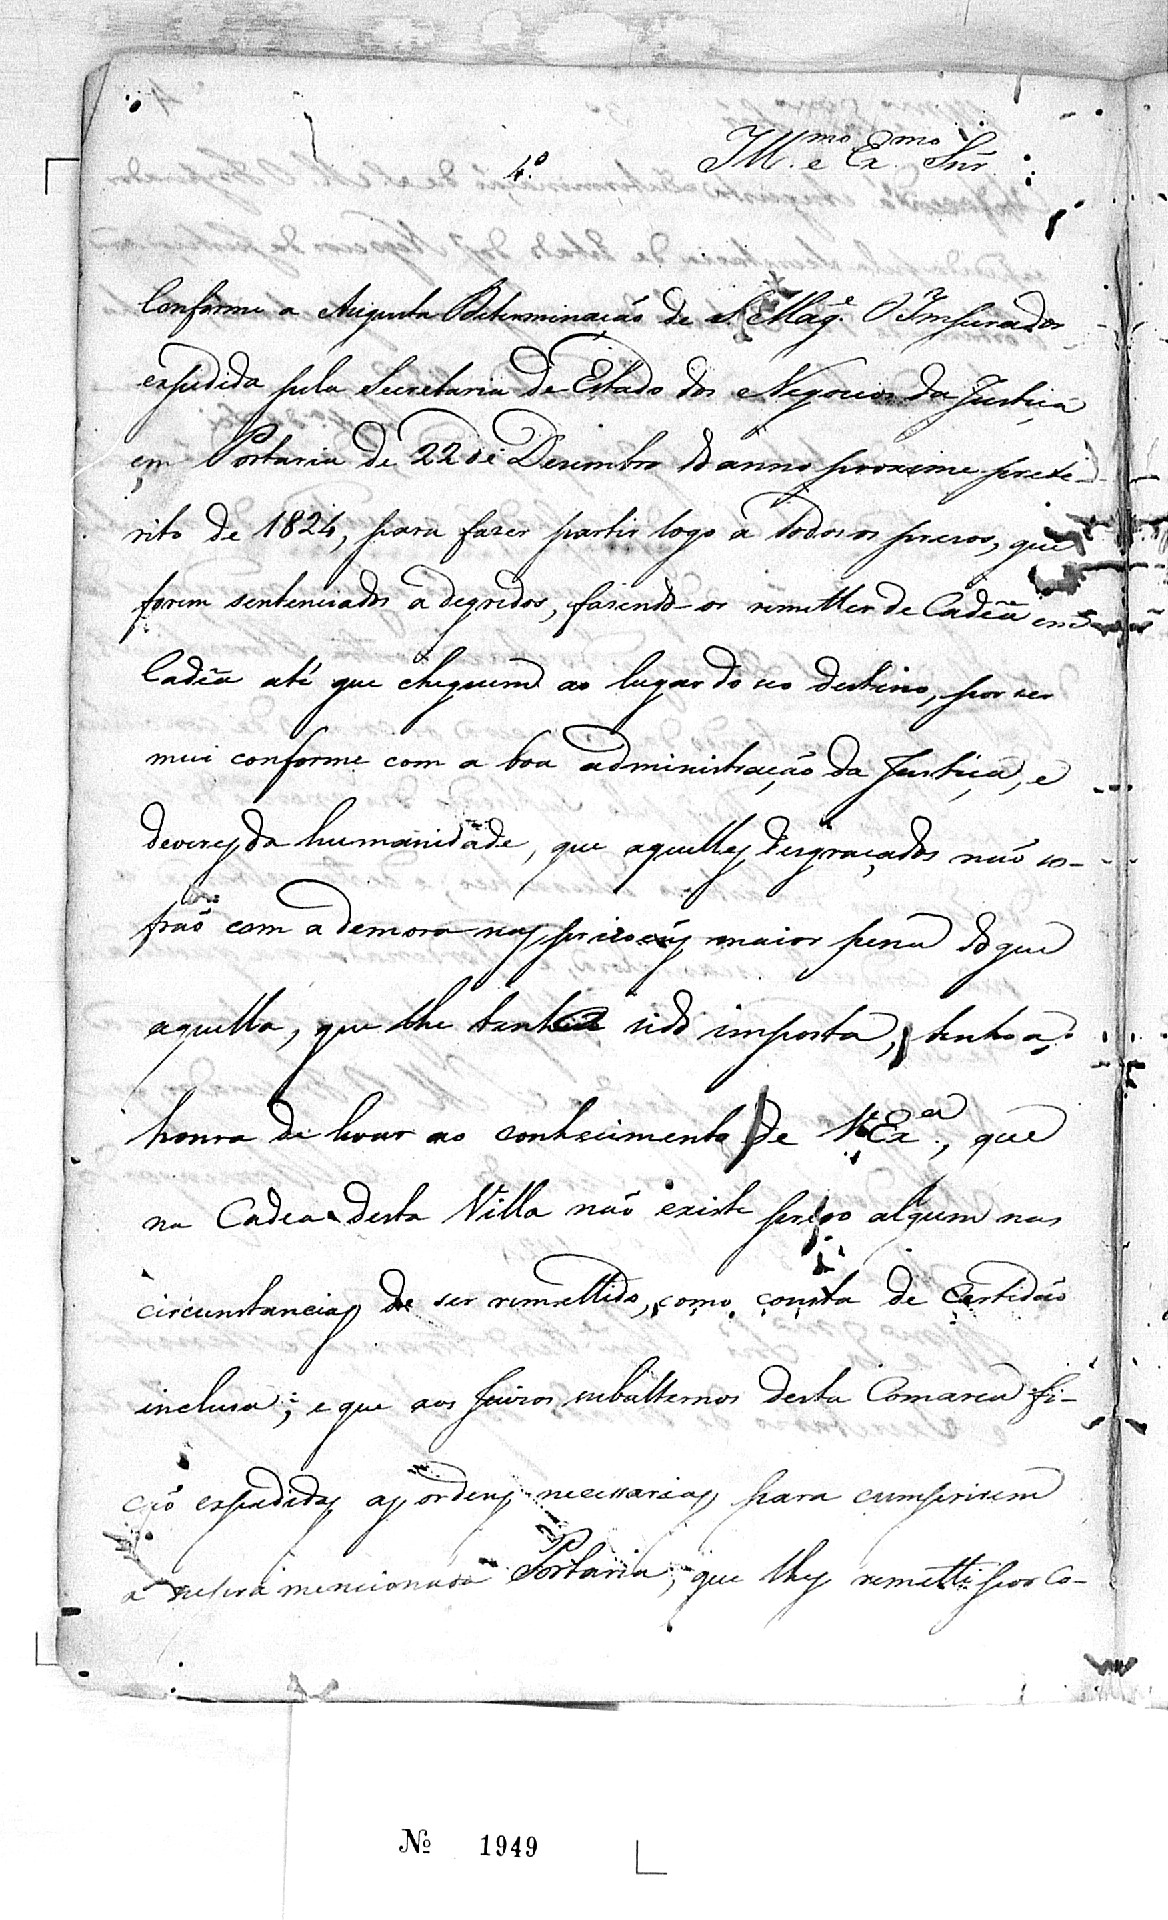 4.º
Ill.mo e Ex.mo Snr.
Conforme a Augusta Determinação de S. Mag.e O Imperador
expedida pela Secretaria de Estado dos Negocios da Justiça
em Portaria de 22 de Desembro do anno proximo prete-
rito de 1824, para fazer partir logo a todos os presos, que
forem sentenciados a degredos, fasendo-os remetter de Cadêa em
Cadêa até que cheguem ao lugar do seo destino, por ser
mui conforme com a boa administração da Justiça, e
deveres da humanidade, que aquelles desgraçados não so-
frão com a demora nas prisoens maior pena do que
aquella, que lhe tenha sido imposta, tenho a
honra de levar ao conhecimento de V. Ex.a, que
na Cadea desta Villa não existe preso algum nas
circunstancias de ser remettido, como consta de Certidão
inclusa; e que aos Juizos subalternos desta Comarca fi-
cão expedidas as ordens necessarias para cumprirem
a supra mencionada Portaria, que lhes remetti por Co-
Nº 1949